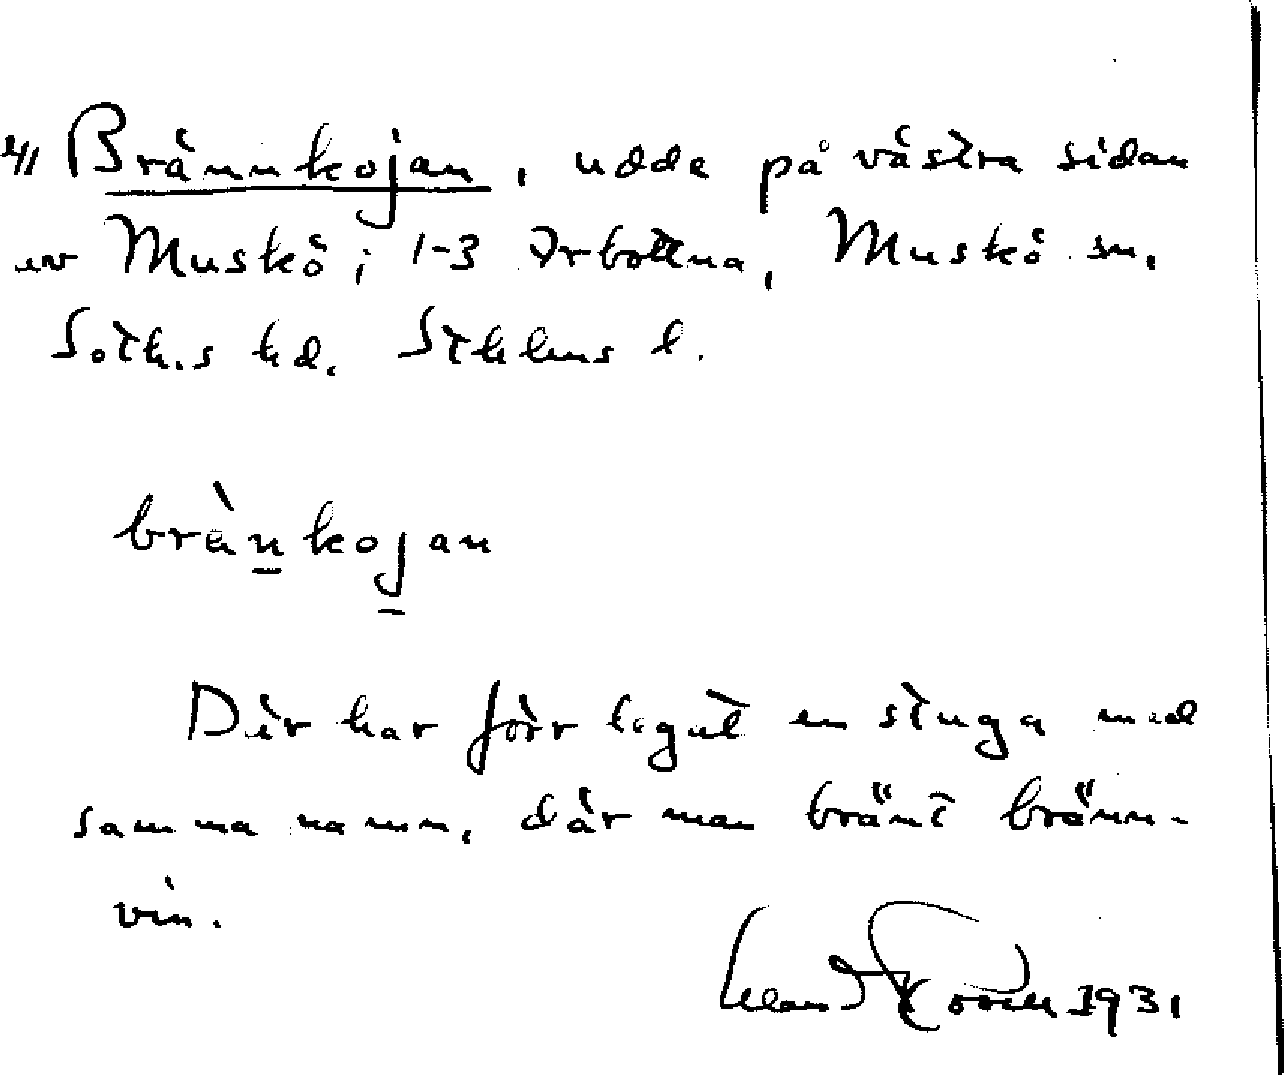 4/1 Brännkojan, udde på västra sidan
av Muskö i 1-3 Arbottna, Muskö sn,
Soth.s hd. Sthlms l.
brànkojan
Där har förr legat en stuga med
samma namn, där man bränt bränn-
vin.
1931